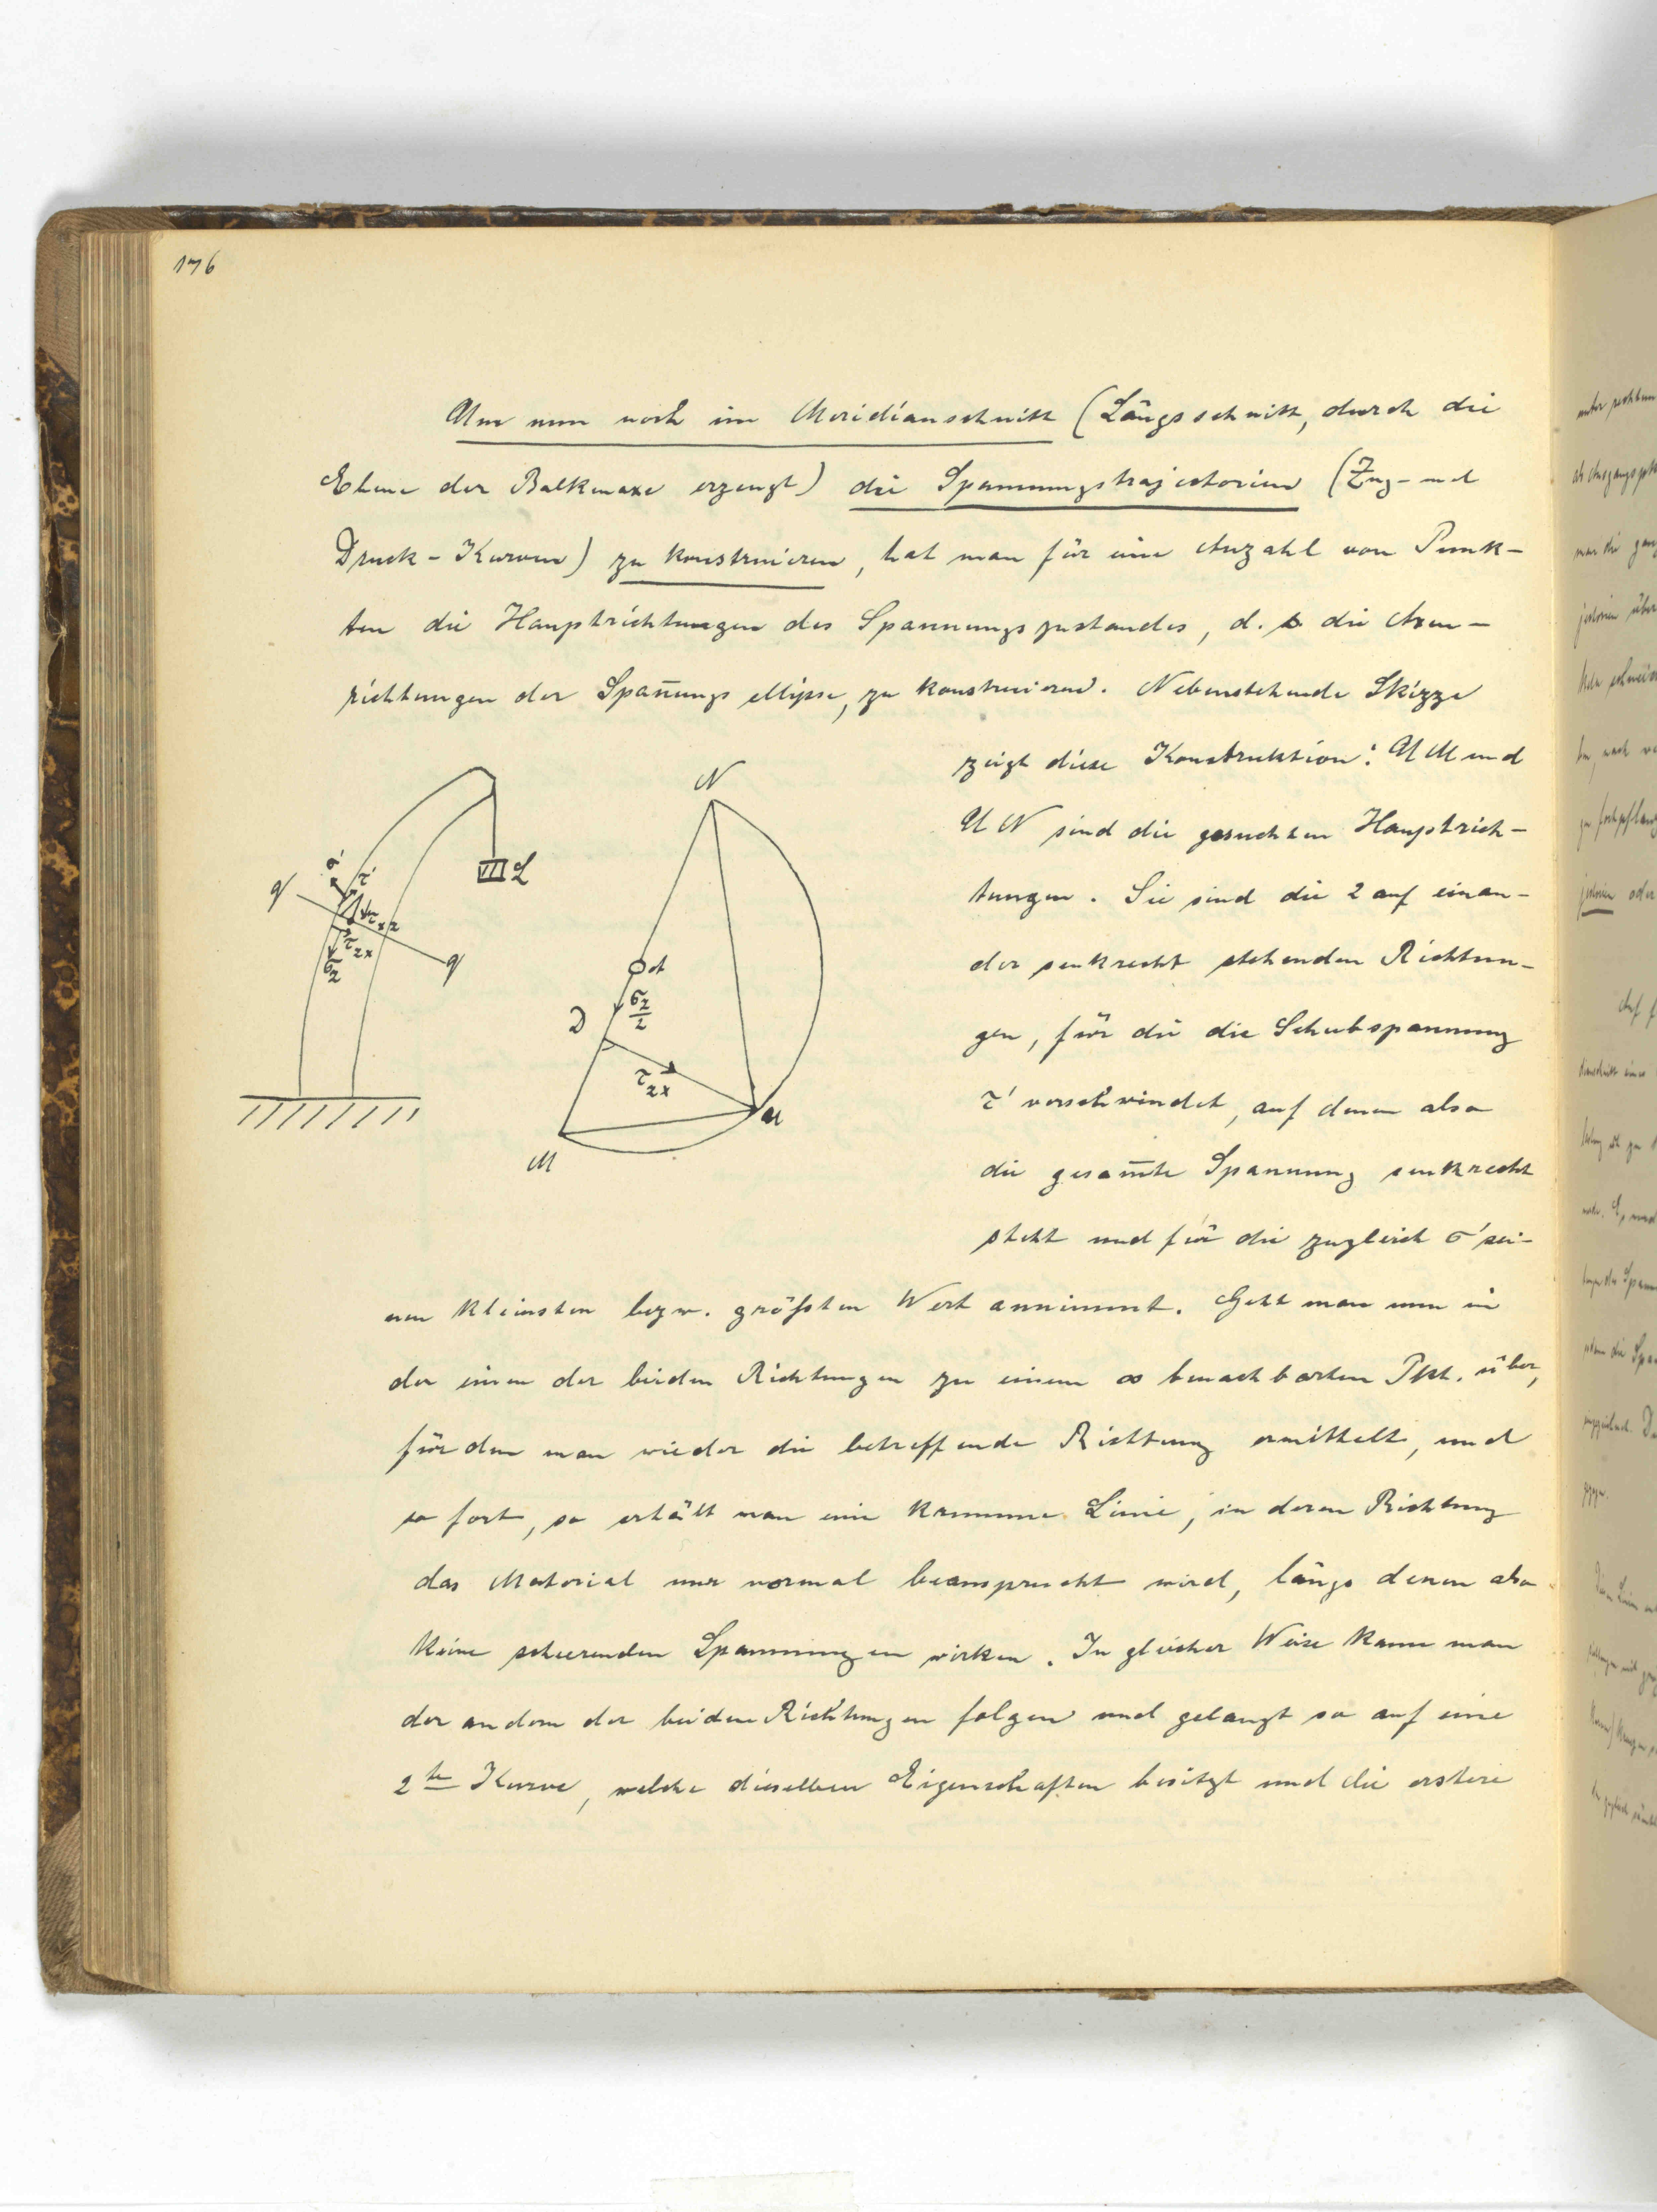 176
Um nun noch im Meridianschnitt (Längsschnitt, durch die
Ebene der Balkenaxe erzeugt) die Spannungstrajectorien (Zug- und
Druck-Kurven) zu konstruieren, hat man für eine Anzahl von Punk-
ten die Hauptrichtungen des Spannungszustandes, d. h. die Axen-
richtungen der Span̄ungsellipse, zu konstruieren. Nebenstehende Skizze
zeigt diese Konstruktion: UM und
UN sind die gesuchten Hauptrich-
tungen. Sie sind die 2 auf einan-
der senkrecht stehenden Richtun-
gen, für die die Schubspannung
τ' verschwindet, auf denen also
die gesam̄te Spannung senkrecht
steht und für die zugleich σ' sei-
nen kleinsten bezw. größten Wert annimmt. Geht man nun in
der einen der beiden Richtungen zu einem ∞ benachbarten Pkt. über,
für den man wieder die betreffende Richtung ermittelt, und
so fort, so erhält man eine krumme Linie, in deren Richtung
das Material nur normal beansprucht wird, längs denen also
keine scherenden Spannungen wirken. In gleicher Weise kann man
der andern der beiden Richtungen folgen und gelangt so auf eine
2te Kurve, welche dieselben Eigenschaften besitzt und die erstere
σ'
τ'
q
τxz
τzx
σz
q
L
N
A
σz/2
D
τzx
U
M